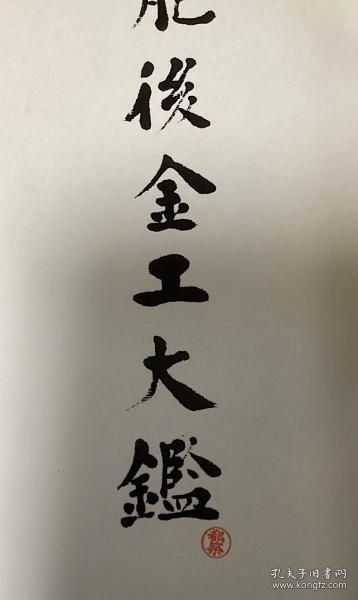 肥後金工大鑑
孔夫子旧书网
@kongfz.com